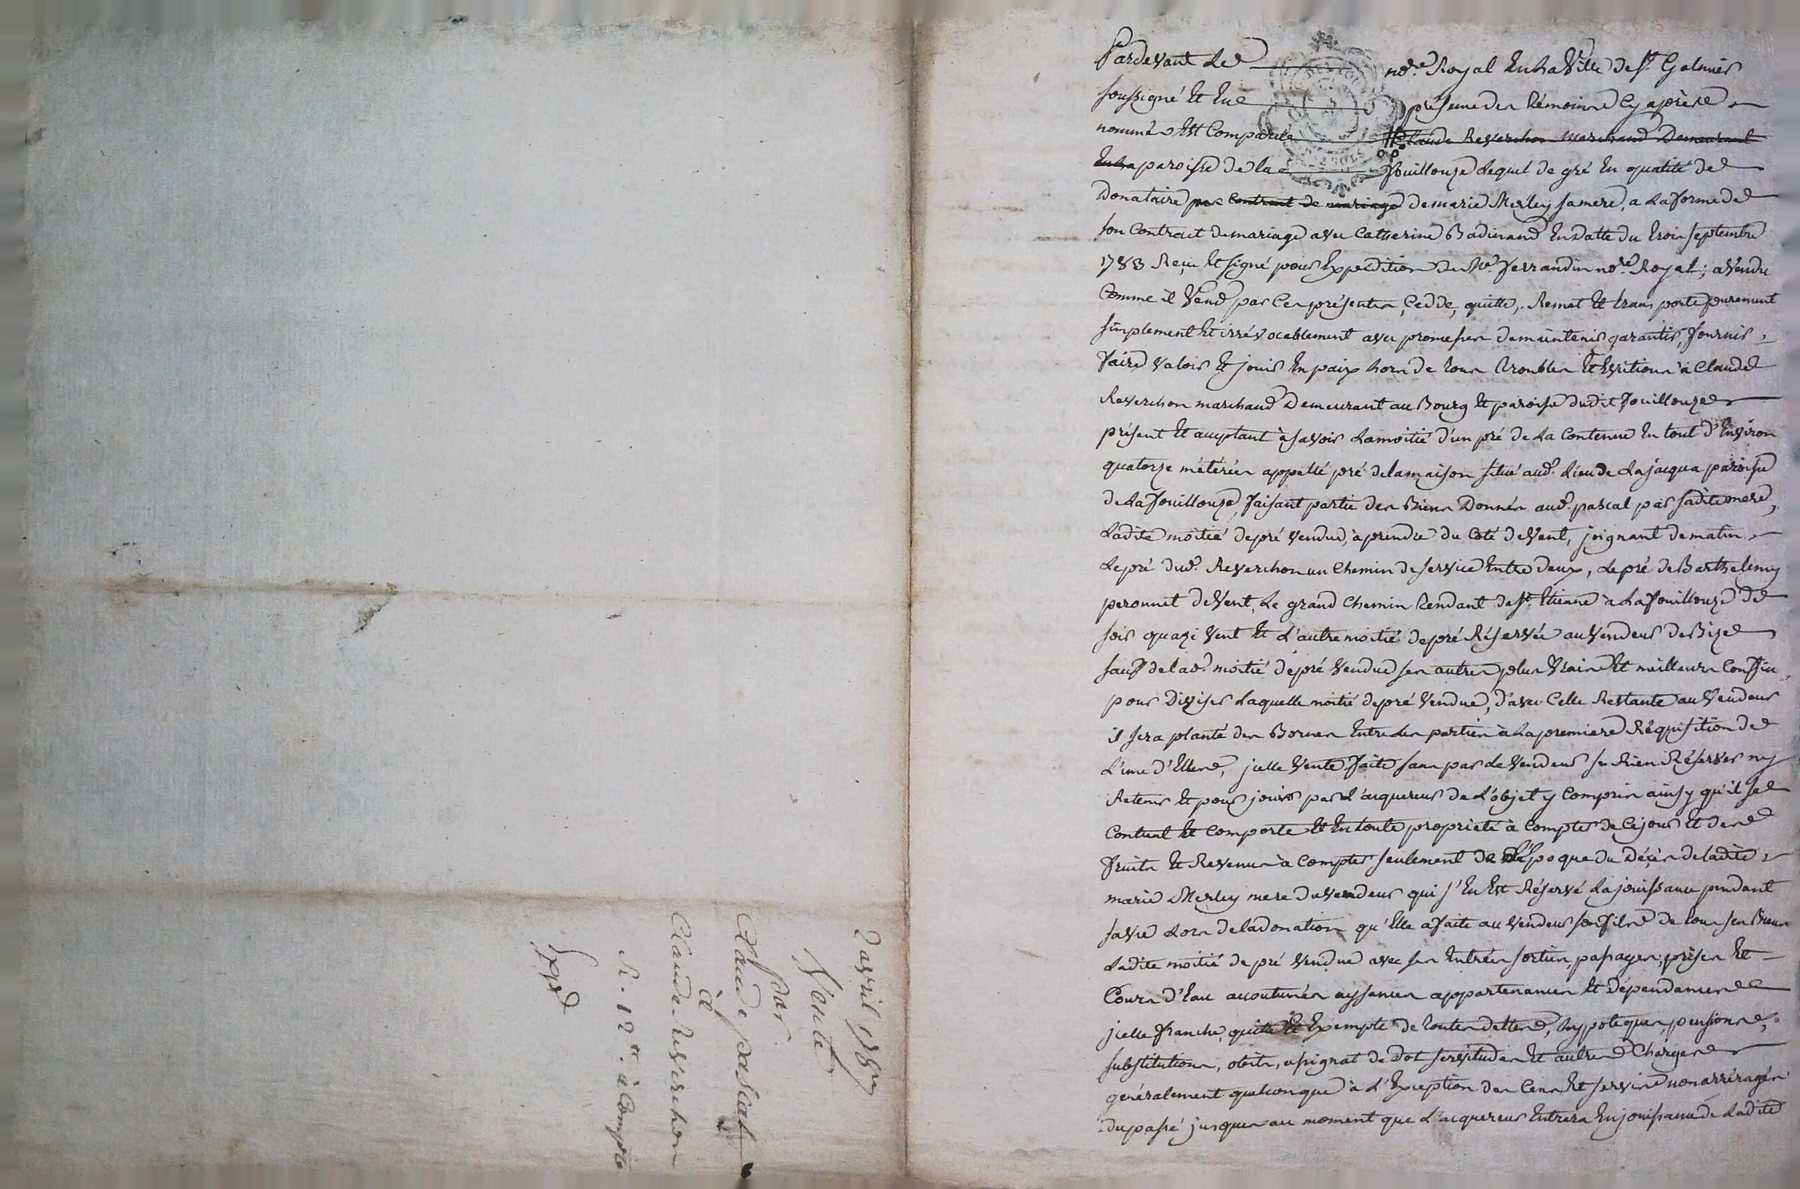 2 avril 1787
Vente
par
Claude pascal
à
Claude Reverchon
R. 12 tt. à Compte
Exp.d
Pardevant Le no.re Royal En La Ville de St. Galmier
soussigné Et En présence des témoins Cy après
nommés Est Comparu Claude Reverchon marchand Demeurant
En La paroisse de La fouillouze Lequel de gré En qualité de
Donataire par Contrat de mariage de marie Merley sa mere, a La forme de
son Contrat de mariage avec Catherine Badinand En Datte du trois septembre
1783 Reçu Et signé pour Expedition de Me. ferrandin no.re Royal; a Vendu
Comme il Vend par Ces présentes, Cedde, quitte, Remet Et transporte purement
simplement Et irrévocablement avec promesses de maintenir garantir, fournir,
faire valoir Et jouir En paix hors de tous troubles Et Evitions à Claude
Reverchon marchand Demeurant au Bourg Et paroisse dudit fouillouze
présent Et acceptant à savoir La moitié d'un pré de La Contenue En tout d'Environ
quatorze métérées appellé pré de la maison situé aud. Lieu de La jacqua paroisse
de La fouillouze, faisant partie des Biens Donnés aud. pascal par sadite mere,
Ladite moitié de pré vendue, à prendre du Coté de Vent, joignant de matin
Le pré dud. Reverchon un Chemin de service Entre deux, Le pré de Barthelemy
peronnet de Vent, Le grand Chemin tendant de St. Etienne à La fouillouze de
soir quazi Vent Et L'autre moitié de pré Réservée au Vendeur de Bize
sauf de lad. moitié de pré Vendue ses autres plus Vrais Et meilleurs Confins,
pour Diviser Laquelle moitié de pré Vendue, d'avec Celle Restante au Vendeur
il sera planté des Bornes Entre Les parties à La premiere Réquisition de
L'une d'Elles, jcelle Vente faite sans par Le Vendeur se Rien Réserver ny
Retenir Et pour jouir par L'acquereur de L'objet y Compris ainsy qu'il se
Contient Et Comporte Et En toute proprieté à Compter de Cejour Et des
fruits Et Revenus à Compter seulement de L'Epoque du Décès de ladite
marie Merley mere du vendeur qui s'En Est Réservé La jouissance pendant
sa vie Lors de la donation qu'Elle a faite au vendeur son fils de tous ses Biens
Ladite moitié de pré Vendue avec ses Entrées sorties, passages, prises Et
Cours d'Eau acoutumés aysances appartenances Et Dépendances
jcelle franche, quitte Et Exempte de toutes dettes, hypoteques, pensions,
substitutions, obits, assignat de Dot servitudes Et autres Charges
généralement quelconque à L'Exception des Cens Et servis non arréragés
du passé jusques au moment que L'acquereur Entrera En jouissance de Ladite